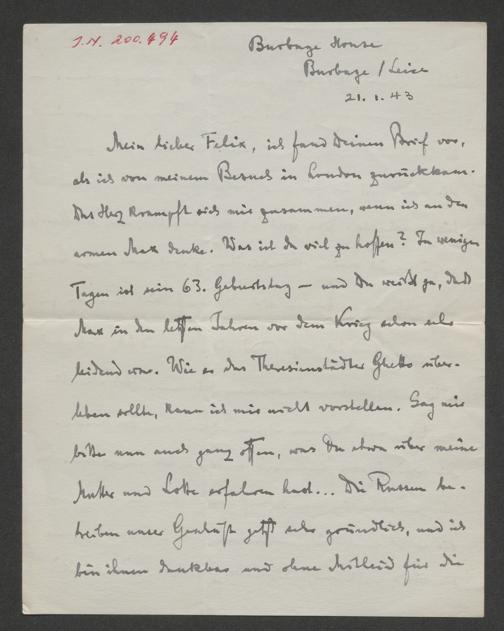 J.N. 200.494
Burbage House
Burbage / Leics
21. 1. 43
Mein lieber Felix, ich fand Deinen Brief vor,
als ich von meinem Besuch in London zurückkam.
Das Herz krampft sich mir zusammen, wenn ich an den
armen Max denke. Was ist da viel zu hoffen? In wenigen
Tagen ist sein 63. Geburtstag – und Du weißt ja, daß
Max in den letzten Jahren vor dem Krieg schon sehr
leidend war. Wie er das Theresienstädter Ghetto über-
leben sollte, kann ich mir nicht vorstellen. Sag mir
bitte nun auch ganz offen, was Du etwa über meine
Mutter und Lotte erfahren hast... Die Russen be-
treiben unser Geschäft jetzt sehr gründlich, und ich
bin ihnen dankbar und ohne Mitleid für die